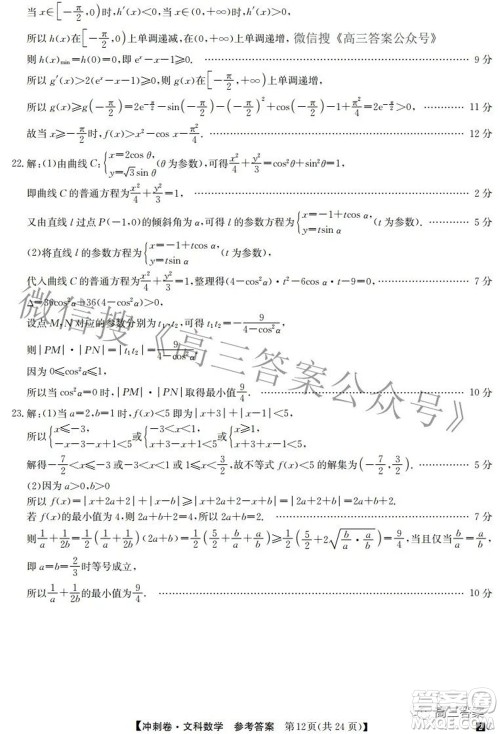 当x∈[-π/2,0)时,h′(x)<0,当x∈(0,+∞)时,h′(x)>0,
所以h(x)在[-π/2,0)上单调递减,在(0,+∞)上单调递增, 微信搜《高三答案公众号》
则h(x)min=h(0)=0,即e^x-x-1≥0. 9分
所以g′(x)>2(e^x-x-1)≥0,所以g(x)在[-π/2,+∞)上单调递增,
所以g(x)≥g(-π/2)=2e^(-π/2)-sin(-π/2)-(-π/2)²+cos(-π/2)-1+π²/4=2e^(-π/2)>0, 11分
故当x≥-π/2时,f(x)>x²-cos x-π²/4. 12分
22.解:(1)由曲线C:{x=2cos θ, y=√3sin θ (θ为参数),可得x²/4+y²/3=cos²θ+sin²θ=1,
即曲线C的普通方程为x²/4+y²/3=1, 2分
又由直线l过点P(-1,0)的倾斜角为α,可得l的参数方程为{x=-1+tcos α, y=tsin α (t为参数). 5分
(2)将直线l的参数方程为{x=-1+tcos α, y=tsin α
代入曲线C的普通方程为x²/4+y²/3=1,整理得(4-cos²α)·t²-6cos α·t-9=0, 7分
Δ=36cos²α+36(4-cos²α)>0,
设点M,N对应的参数分别为t₁,t₂,可得t₁t₂=-9/(4-cos²α),
则|PM|·|PN|=|t₁t₂|=9/(4-cos²α),
因为0≤cos²α≤1,
所以当cos²α=0时,|PM|·|PN|取得最小值9/4. 10分
23.解:(1)当a=2,b=1时,f(x)<5即为|x+3|+|x-1|<5,
所以{x≤-3, -x-3-x+1<5 或{-3<x<1, x+3-x+1<5 或{x≥1, x+3+x-1<5,
解得-7/2<x≤-3或-3<x<1或1≤x<3/2,故不等式f(x)<5的解集为(-7/2,3/2). 5分
(2)因为a>0,b>0
所以f(x)=|x+2a+2|+|x-b|≥|x+2a+2-x+b|=2a+b+2.
若f(x)的最小值为4,则2a+b+2=4,所以2a+b=2. 7分
则1/a+1/2b=1/2(1/a+1/2b)(2a+b)=1/2(5/2+b/a+a/b)≥1/2(5/2+2√(b/a·a/b))=9/4,当且仅当b/a=a/b,
即a=b=2/3时等号成立,
所以1/a+1/2b的最小值为9/4. 10分
微信搜《高三答案公众号》
【冲刺卷·文科数学 参考答案 第12页(共24页)】
高三答案